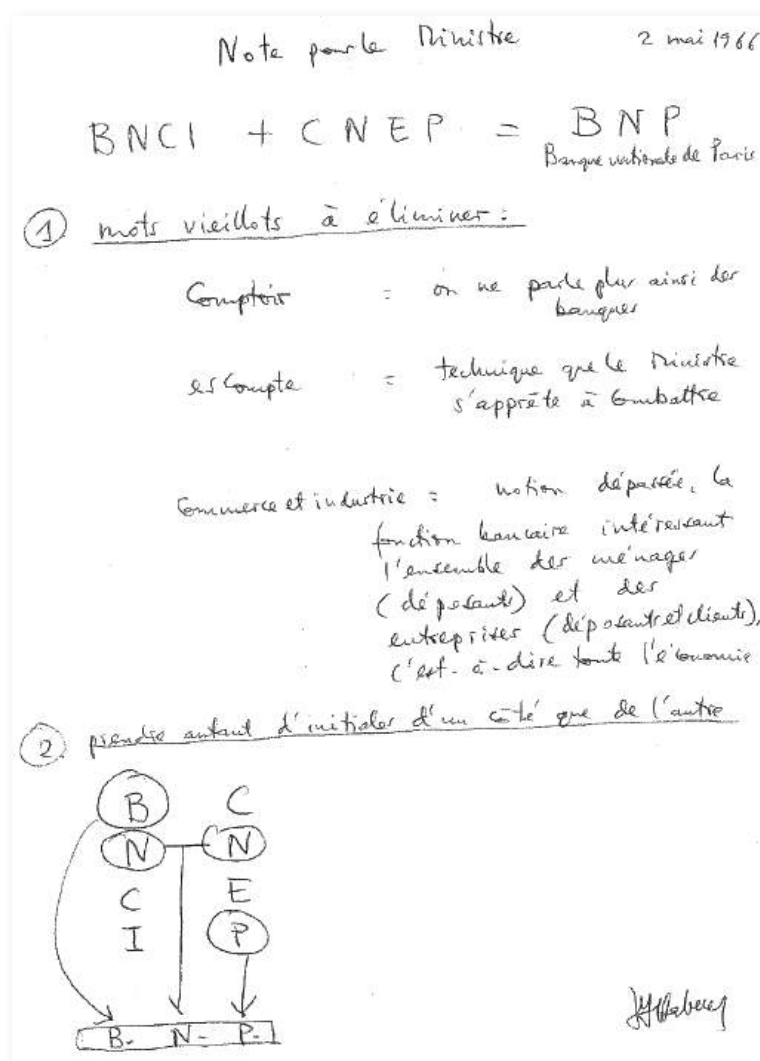 Note pour le Ministre 2 mai 1966
BNCI + CNEP = BNP
Banque nationale de Paris
① mots vieillots à éliminer :
Comptoir = on ne parle plus ainsi des
banques
escompte = technique que le Ministre
s'apprête à combattre
Commerce et industrie = notion dépassée, la
fonction bancaire intéressant
l'ensemble des ménages
(déposants) et des
entreprises (déposants et clients),
c'est-à-dire toute l'économie
② prendre autant d'initiales d'un côté que de l'autre
B C
N N
C E
I P
B. N. P.